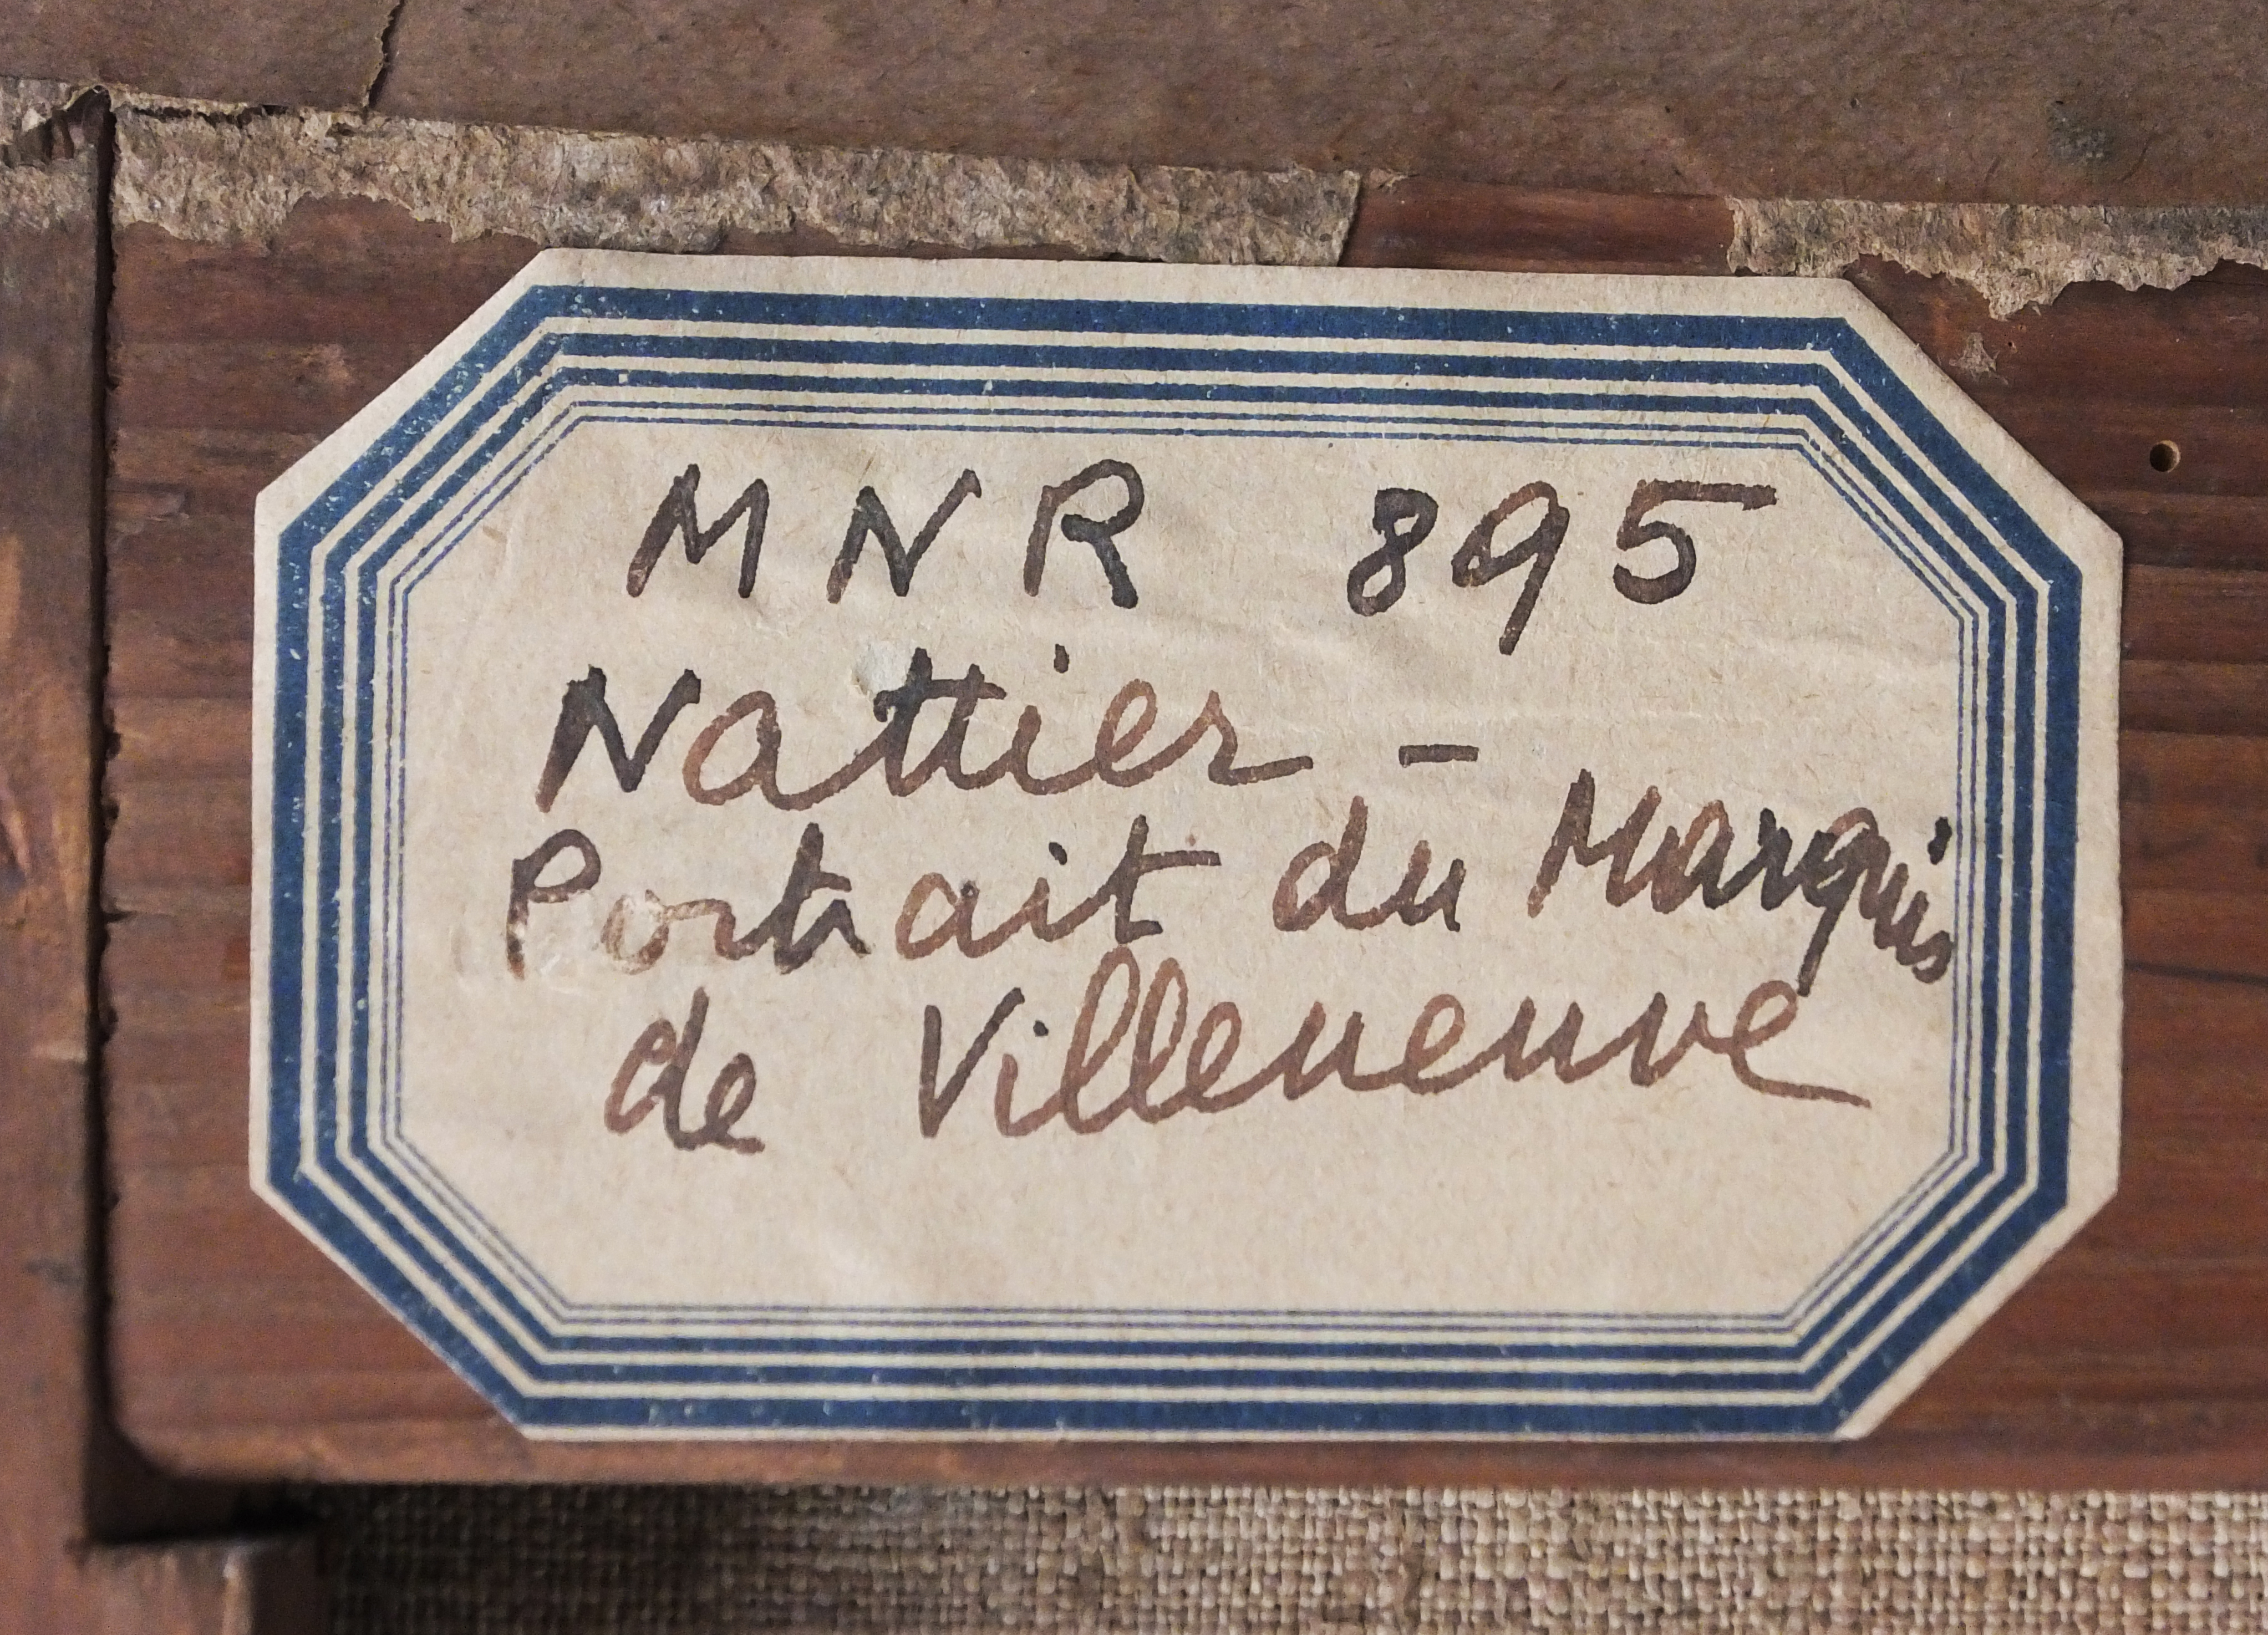 MNR 895
Nattier -
Portrait du Marquis
de Villeneuve